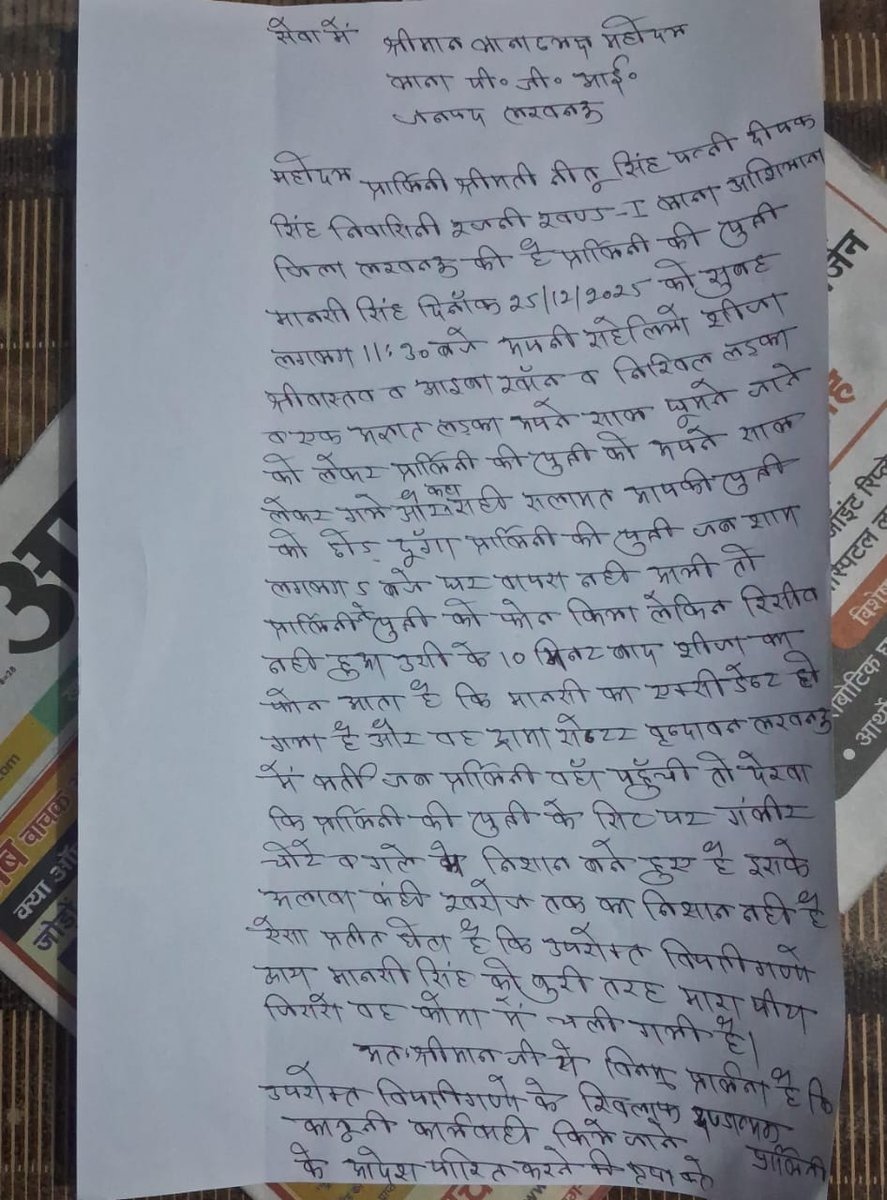 सेवा में श्रीमान थानाध्यक्ष महोदय
थाना पी० जी० आई०
जनपद लखनऊ
महोदय प्रार्थिनी श्रीमती नीतू सिंह पत्नी दीपक
सिंह निवासिनी रजनी खण्ड-I थाना आशियाना
जिला लखनऊ की है प्रार्थिनी की पुत्री
मानसी सिंह दिनाँक 25/12/2025 को सुबह
लगभग 11:30 बजे अपनी सहेलियो शीजा
श्रीवास्तव व आइबा खॉन व निखिल लडका
व एक अज्ञात लड़का अपने साथ घूमने जाने
को लेकर प्रार्थिनी की पुत्री को अपने साथ
लेकर गये और कहा सही सलामत आपकी पुत्री
को छोड़ दूँगा प्रार्थिनी की पुत्री जब शाम
लगभग 5 बजे घर वापस नही आयी तो
प्रार्थिनी ने पुत्री को फोन किया लेकिन रिसीव
नही हुआ उसी के 10 मिनट बाद शीजा का
फोन आता है कि मानसी का एक्सीडेन्ट हो
गया है और वह ट्रामा सेन्टर वृन्दावन लखनऊ
में भर्ती जब प्रार्थिनी वहाँ पहुँची तो देखा
कि प्रार्थिनी की पुत्री के सिर पर गंभीर
चोटे व गले में निशान बने हुए है इसके
अलावा कंही खरोज तक का निशान नही है
ऐसा प्रतीत होता है कि उपरोक्त विपक्षीगणो
द्वारा मानसी सिंह को बुरी तरह मारा पीटा
जिससे वह कोमा में चली गयी है।
अतः श्रीमान जी से विनम्र प्रार्थना है कि
उपरोक्त विपक्षीगणो के खिलाफ दण्डात्मक
कानूनी कार्यवाही किये जाने प्रार्थिनी
के आदेश पारित करने की कृपा करे
अ
जेन
जोइंट रिप्ले
स्पिटल
विशे
रोबोटिक
.com
वाचक
क्या ऑ
जोड़ो